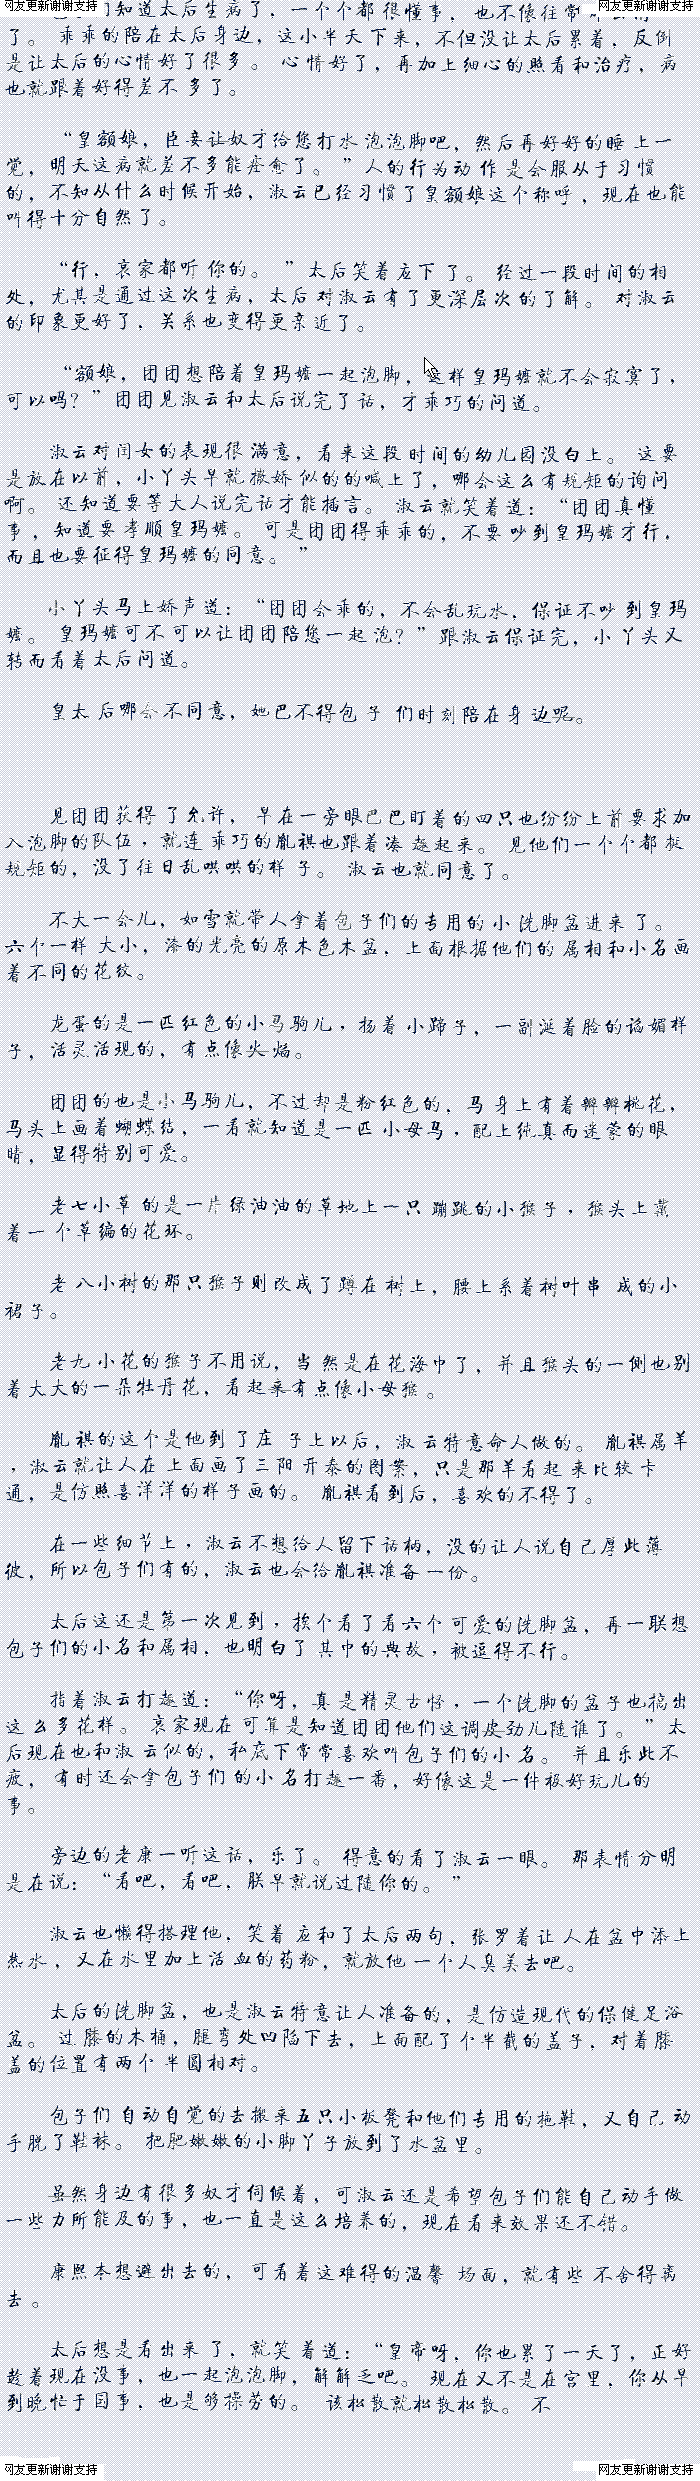 网友更新谢谢支持 网友更新谢谢支持
知道太后生病了，一个个都很懂事，也不像往常
了。 乖乖的陪在太后身边，这小半天下来，不但没让太后累着，反倒
是让太后的心情好了很多。 心情好了，再加上细心的照看和治疗，病
也就跟着好得差不多了。
“皇额娘，臣妾让奴才给您打水泡泡脚吧，然后再好好的睡上一
觉，明天这病就差不多能痊愈了。 ”人的行为动作是会服从于习惯
的，不知从什么时候开始，淑云已经习惯了皇额娘这个称呼，现在也能
叫得十分自然了。
“行，哀家都听你的。 ”太后笑着应下了。 经过一段时间的相
处，尤其是通过这次生病，太后对淑云有了更深层次的了解。 对淑云
的印象更好了，关系也变得更亲近了。
“额娘，团团想陪着皇玛嬷一起泡脚，这样皇玛嬷就不会寂寞了，
可以吗？”团团见淑云和太后说完了话，才乖巧的问道。
淑云对闺女的表现很满意，看来这段时间的幼儿园没白上。 这要
是放在以前，小丫头早就撒娇似的的喊上了，哪会这么有规矩的询问
啊。 还知道要等大人说完话才能插言。 淑云就笑着道：“团团真懂
事，知道要孝顺皇玛嬷。 可是团团得乖乖的，不要吵到皇玛嬷才行，
而且也要征得皇玛嬷的同意。”
小丫头马上娇声道：“团团会乖的，不会乱玩水，保证不吵到皇玛
嬷。 皇玛嬷可不可以让团团陪您一起泡？”跟淑云保证完，小丫头又
转而看着太后问道。
皇太后哪会不同意，她巴不得包子们时刻陪在身边呢。
见团团获得了允许，早在一旁眼巴巴盯着的四只也纷纷上前要求加
入泡脚的队伍，就连乖巧的胤祺也跟着凑趣起来。 见他们一个个都挺
规矩的，没了往日乱哄哄的样子。 淑云也就同意了。
不大一会儿，如雪就带人拿着包子们的专用的小洗脚盆进来了。
六个一样大小，漆的光亮的原木色木盆，上面根据他们的属相和小名画
着不同的花纹。
龙蛋的是一匹红色的小马驹儿，扬着小蹄子，一副涎着脸的谄媚样
子，活灵活现的，有点像火焰。
团团的也是小马驹儿，不过却是粉红色的，马身上有着瓣瓣桃花，
马头上画着蝴蝶结，一看就知道是一匹小母马，配上纯真而迷蒙的眼
睛，显得特别可爱。
老七小草的是一片绿油油的草地上一只蹦跳的小猴子，猴头上戴
着一个草编的花环。
老八小树的那只猴子则改成了蹲在树上，腰上系着树叶串成的小
裙子。
老九小花的猴子不用说，当然是在花海中了，并且猴头的一侧也别
着大大的一朵牡丹花，看起来有点像小母猴。
胤祺的这个是他到了庄子上以后，淑云特意命人做的。 胤祺属羊
，淑云就让人在上面画了三阳开泰的图案，只是那羊看起来比较卡
通，是仿照喜洋洋的样子画的。 胤祺看到后，喜欢的不得了。
在一些细节上，淑云不想给人留下话柄，没的让人说自己厚此薄
彼，所以包子们有的，淑云也会给胤祺准备一份。
太后这还是第一次见到，挨个看了看六个可爱的洗脚盆，再一联想
包子们的小名和属相，也明白了其中的典故，被逗得不行。
指着淑云打趣道：“你呀，真是精灵古怪，一个洗脚的盆子也搞出
这么多花样。 哀家现在可算是知道团团他们这调皮劲儿随谁了。”太
后现在也和淑云似的，私底下常常喜欢叫包子们的小名。 并且乐此不
疲，有时还会拿包子们的小名打趣一番，好像这是一件极好玩儿的
事。
旁边的老康一听这话，乐了。 得意的看了淑云一眼。 那表情分明
是在说：“看吧，看吧，朕早就说过随你的。”
淑云也懒得搭理他，笑着应和了太后两句，张罗着让人在盆中添上
热水，又在水里加上活血的药粉，就放他一个人臭美去吧。
太后的洗脚盆，也是淑云特意让人准备的，是仿造现代的保健足浴
盆。 过膝的木桶，腿弯处凹陷下去，上面配了个半截的盖子，对着膝
盖的位置有两个半圆相对。
包子们自动自觉的去搬来五只小板凳和他们专用的拖鞋，又自己动
手脱了鞋袜。 把肥嫩嫩的小脚丫子放到了水盆里。
虽然身边有很多奴才伺候着，可淑云还是希望包子们能自己动手做
一些力所能及的事，也一直是这么培养的，现在看来效果还不错。
康熙本想避出去的，可看着这难得的温馨场面，就有些不舍得离
去。
太后想是看出来了，就笑着道：“皇帝呀，你也累了一天了，正好
趁着现在没事，也一起泡泡脚，解解乏吧。 现在又不是在宫里，你从早
到晚忙于国事，也是够操劳的。 该松散就松散松散。 不
网友更新谢谢支持 网友更新谢谢支持